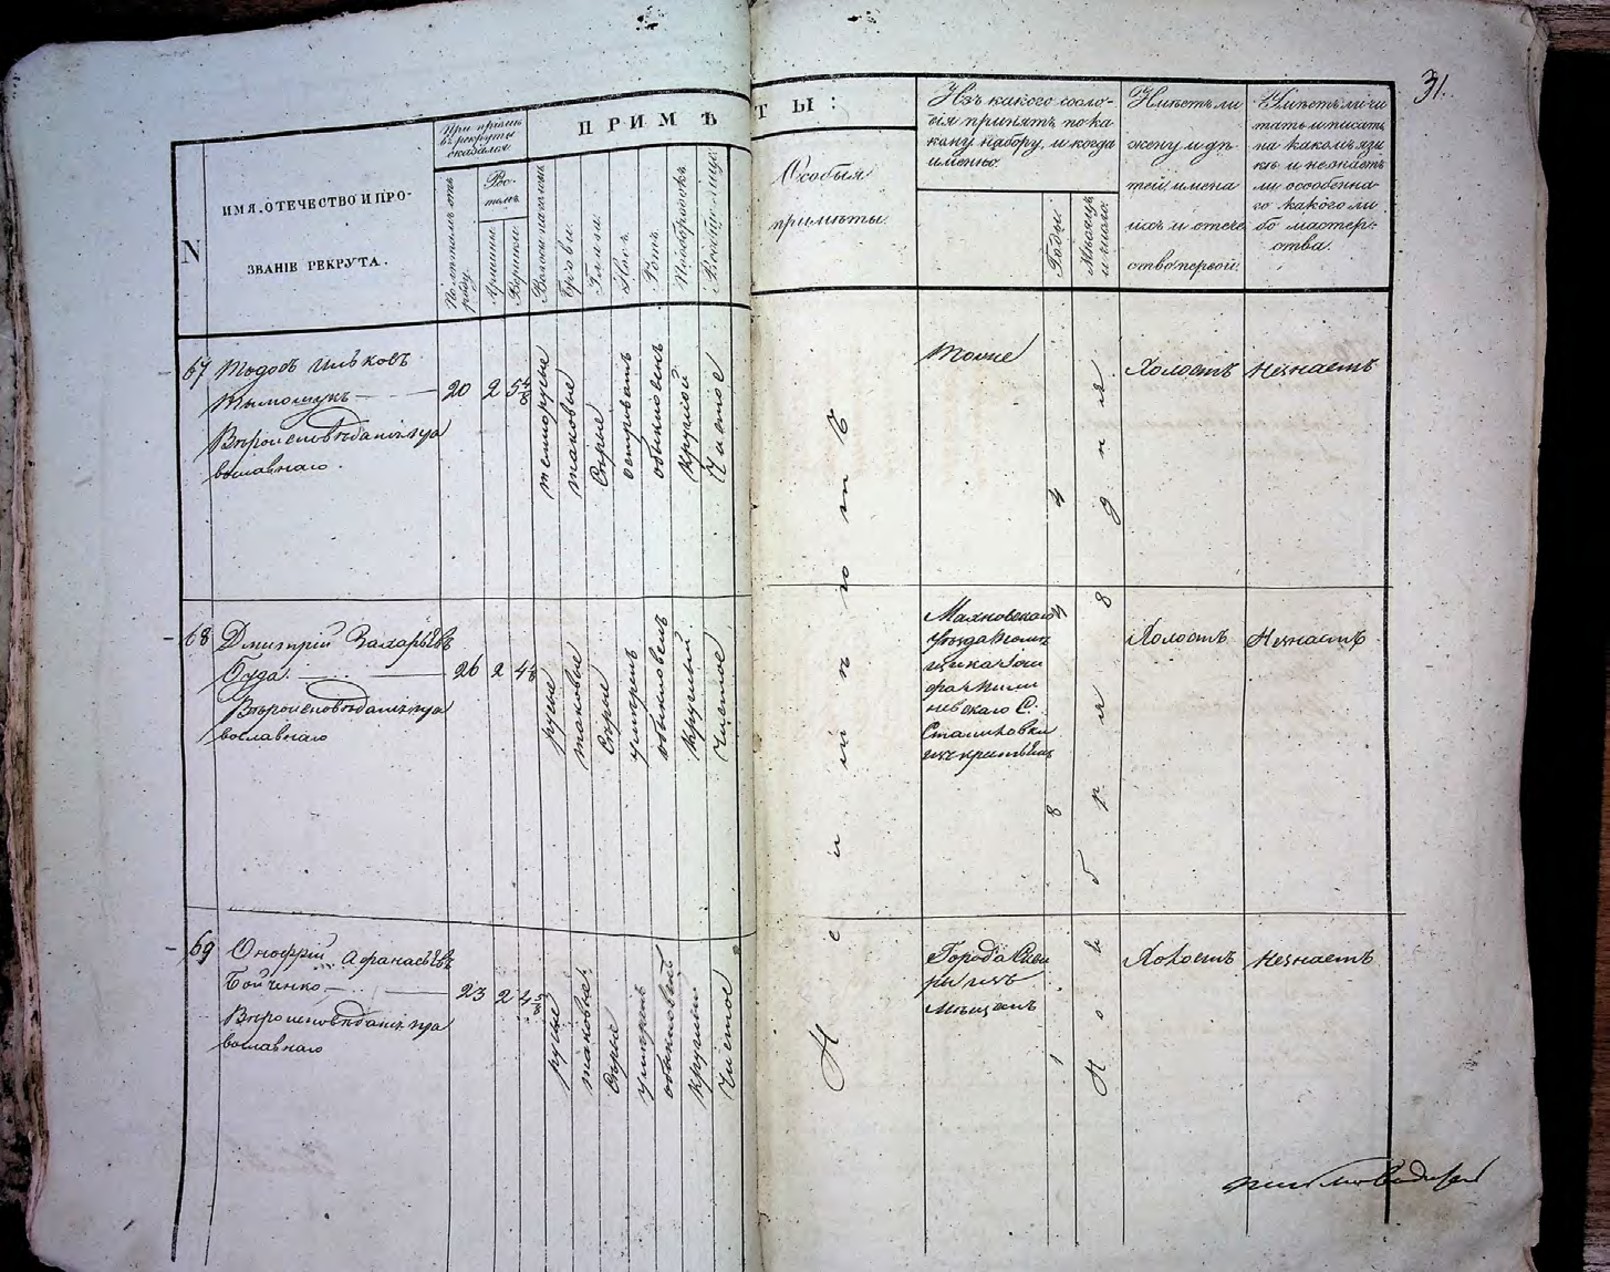 31.
N
ИМЯ, ОТЕЧЕСТВО И ПРО-
ЗВАНІЕ РЕКРУТА.
При пріемѣ
въ рекруты
оказался
По лѣтамъ отъ
роду.
Ро-
стомъ.
Аршины.
Вершки.
ПРИМѢТЫ:
Волосы
Брови.
Глаза.
Носъ.
Ротъ.
Подбородокъ
Вообще лице
Особыя
примѣты.
Изъ какого сосло-
вія принятъ, по ка-
кому набору, и когда
именно.
Годы.
Мѣсяцъ
и число.
Имѣетъ ли
жену и дѣ-
тей, имена
ихъ и отече
ство первой.
Умѣетъ ли чи
тать и писать
на какомъ язы
кѣ и не знаетъ
ли особенна-
го какого ли
бо мастер-
ства.
67 Тодоръ Ильковъ
Тымощукъ — 20 2 5 4/8
Вѣроисповѣданія пра
вославнаго.
темнорусые
таковые
Сѣрые
островатъ
обыкновенъ
круглой
Чистое
Тоже
Холостъ
Незнаетъ
68 Дмитрій Захарьевъ
Буда. — 26 2 4
Вѣроисповѣданія пра
вославнаго
русые
таковые
Сѣрые
умѣренъ
обыкновенъ
круглый
Чистое
Махновскаго
уѣзда Помѣ
щика
невскаго С.
изъ крестьянъ
Холостъ
Незнаетъ
69 Онофрій Афанасьевъ
Бойченко — 23 2 4 5/8
Вѣроисповѣданія пра
вославнаго
русые
таковыя
Сѣрые
умѣренъ
обыкновенъ
круглый
Чистое
Города Скви
ры изъ
мѣщанъ
Холостъ
Незнаетъ
Неимѣетъ
1844
Ноября 8 дня